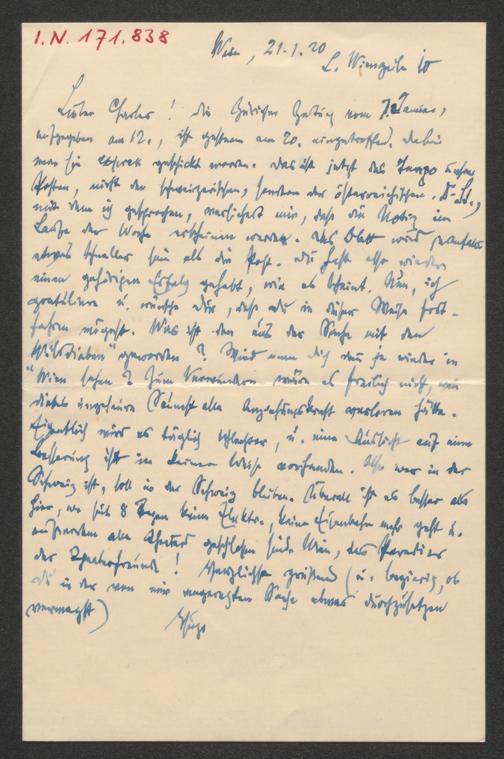 I.N. 171.838
Wien, 21.1.20
L. Wienzeile
Lieber Charles! Die Züricher Zeitung vom 7. Januar,
aufgegeben am 12., ist gestern am 20. eingetroffen. Dabei
war sie express geschickt worden. Das ist jetzt das Tempo
Posten, nicht der schweizerischen, sondern der österreichischen.
mit dem ich gesprochen, versichert mir, daß die Notiz im
Laufe der Woche erscheinen werde. Das Blatt wird
etwas schneller sein als die Post. Du hast also wieder
einen gehörigen Erfolg gehabt, wie es scheint. Nun, ich
gratuliere u. wünsche Dir, daß du in dieser Weise fort-
fahren mögest. Was ist den aus der Sache mit den
"Wilddieben" geworden? Wird man Dich denn je wieder in
Wien sehen? Zum Verwundern wäre es freilich nicht, wenn
dieses ungeheure alle Anziehungskraft verloren hätte.
Eigentlich wird es täglich schlechter, u. eine Aussicht auf eine
Besserung ist in keiner Weise vorhanden. Also wer in der
Schweiz ist, soll in der Schweiz bleiben. Überall ist es besser als
hier, wo seit 8 Tagen keine Elektr., keine Eisenbahn mehr geht u.
außerdem alle Theater geschlossen sind. Wien, das Paradies
der Theaterfreunde! Herzlichst grüßend (u. begierig, ob
du in der von mir angeregten Sache etwas durchzusetzen
vermagst) Hugo